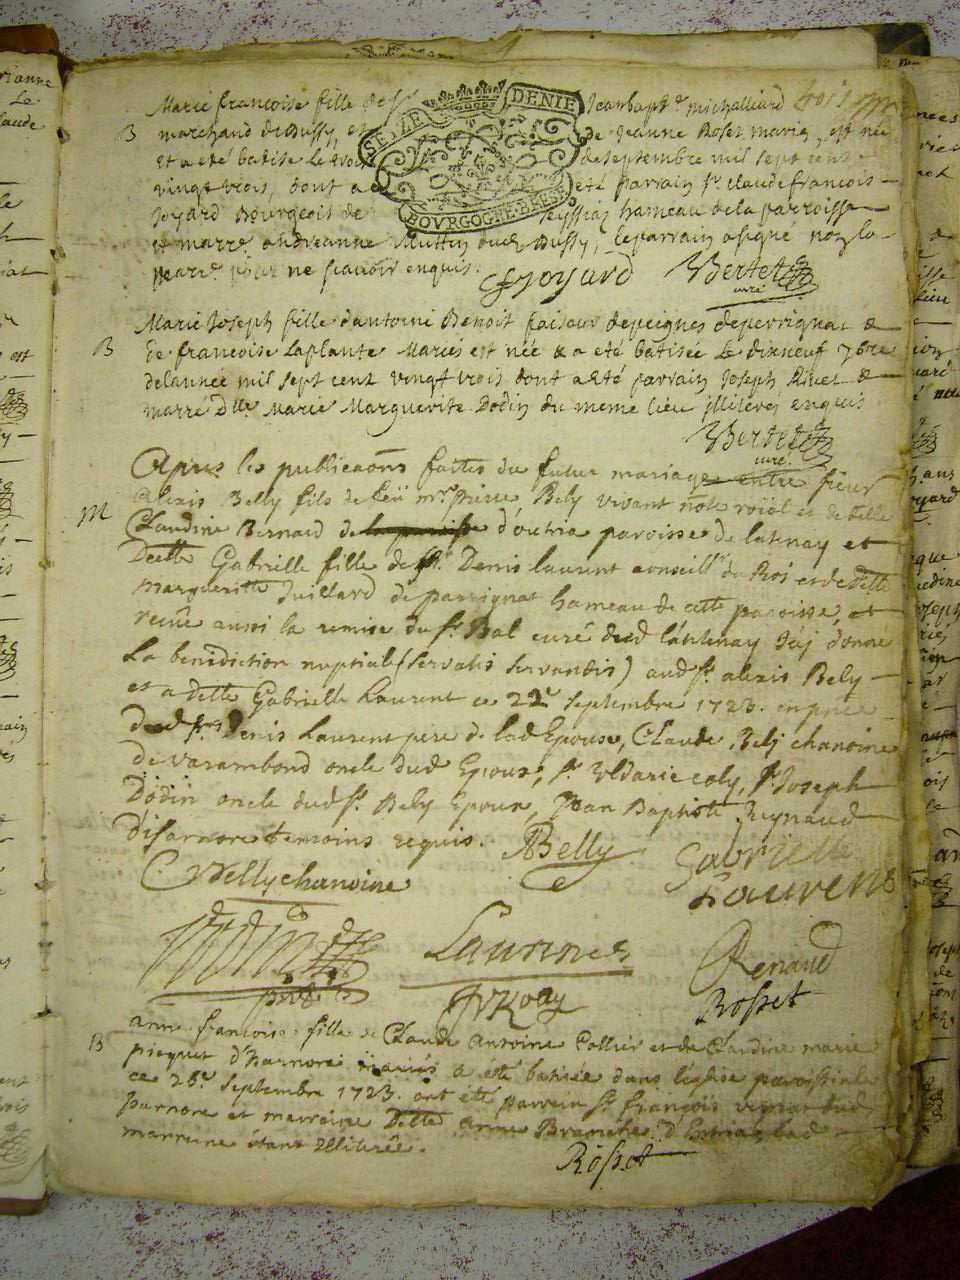 Marie francoise fille de Sr Jean bapte michalliard
B marchand de Bussy, et de Jeanne Roset mariez, est née
et a eté batisé le trois de septembre mil sept cent
vingt trois, dont a eté parrain sr claude francois
Joyard Bourgeois de hameau de la parroisse
et marre andreanne Muttin dud Bussy, le parrain a signé non la
marre pour ne scavoir enquis.
SEL LE DENIE
BOVRGOGNE BRESSE
Joyard Bertet
curé
Marie Joseph fille d'antoine Benoit faiseur de peignes de perrignat &
B de francoise Laplante Mariés est née & a eté batisée Le dixneuf 7bre
de lannée mil sept cent vingt trois dont a eté parrain Joseph Rivet &
marre Dlle Marie Marguerite Dodin du meme lieu illiterés enquis
Bertet
curé
Apres les publicaõns faites du futur mariage entre sieur
Alexis Belly fils de feü mr pierre Bely vivant notre roial et de delle
M Claudine Bernard de la paroisse d'outria paroisse de latenay et
Delle Gabrielle fille de Sr Denis laurent conseillr du Roi et de delle
Margueritte Juillard de parrignat hameau de cette paroisse, et
receüe aussi la remise du sr Bal curé dud látenay J'ay donné
La benediction nuptiale (servatis servandis) aud sr alexis Bely
et a delle Gabrielle Laurent ce 22e septembre 1723. en pñce
dud sr Denis Laurent pere de lad Epouse, Claude Belj chanoine
de varambond oncle dud Epoux, sr coly, sr Joseph
Dodin oncle dud sr Bely Epoux, Jean Baptiste Reynaud
d'isarnore temoins requis.
ABelly
Gabrielle
Laurent
C Belly chanoine
Laurent
Renaud
Rosset
B anne francoise fille de Claude Antoine Collier et de Claudine marie
picquet d'Isarnore mariés a été batisée dans l'eglise paroissiale
ce 26e septembre 1723. ont été parrein sr françois dud
Isarnore et marraine Delle anne Branche d' lad
marreine étant illiterée.
Rosset